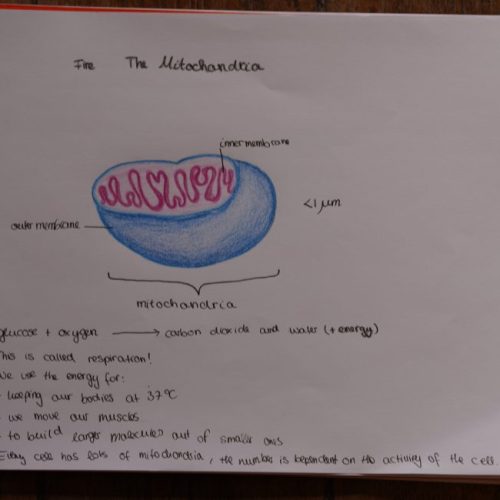 Fire The Mitochandria
inner membrane
<1 μm
outer membrane
mitochandria
glucose + oxygen → carbon dioxide and water (+ energy)
This is called respiration!
We use the energy for:
- keeping our bodies at 37°C
- we move our muscles
- to build larger molecules out of smaller ones
Every cell has lots of mitochondria, the number is dependent on the activity of the cell